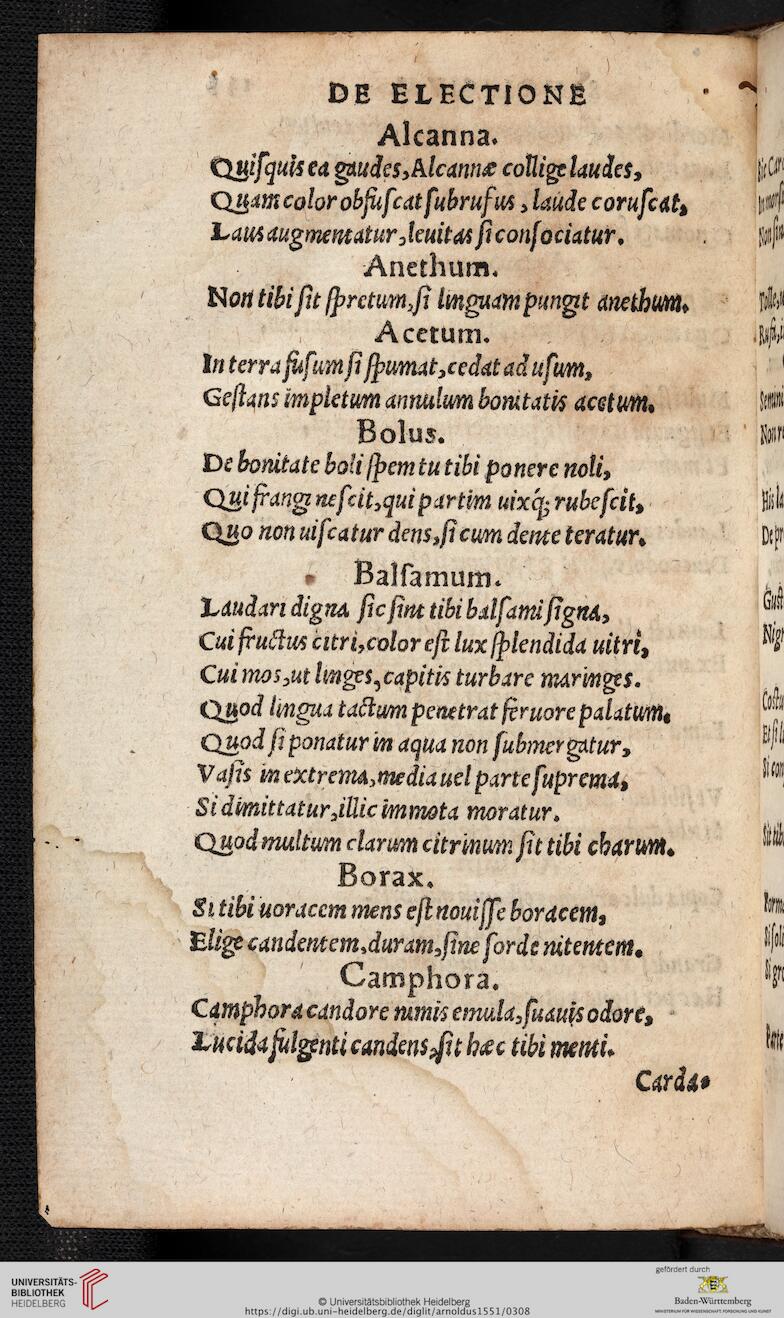 DE ELECTIONE
Alcanna.
Quiſquis ea gaudes, Alcannæ collige laudes,
Quam color obfuſcat ſubrufus, laude coruſcat,
Laus augmentatur, leuitas ſi conſociatur.
Anethum.
Non tibi ſit ſpretum, ſi linguam pungit anethum.
Acetum.
In terra fuſum ſi ſpumat, cedat ad uſum,
Geſtans impletum annulum bonitatis acetum.
Bolus.
De bonitate boli ſpem tu tibi ponere noli,
Qui frangi neſcit, qui partim uixq́; rubeſcit,
Quo non uiſcatur dens, ſi cum dente teratur.
Balſamum.
Laudari digna ſic ſint tibi balſami ſigna,
Cui fructus citri, color eſt lux ſplendida uitri,
Cui mos, ut linges, capitis turbare maringes.
Quod lingua tactum penetrat feruore palatum.
Quod ſi ponatur in aqua non ſubmergatur,
Vaſis in extrema, media uel parte ſuprema,
Si dimittatur, illic immota moratur.
Quod multum clarum citrinum ſit tibi charum.
Borax.
Si tibi uoracem mens eſt nouiſſe boracem,
Elige candentem, duram, ſine ſorde nitentem.
Camphora.
Camphora candore nimis emula, ſuauis odore,
Lucida fulgenti candens, ſit hæc tibi menti.
Carda-
UNIVERSITÄTS-
BIBLIOTHEK
HEIDELBERG
© Universitätsbibliothek Heidelberg
https://digi.ub.uni-heidelberg.de/diglit/arnoldus1551/0308
gefördert durch
Baden-Württemberg
MINISTERIUM FÜR WISSENSCHAFT, FORSCHUNG UND KUNST